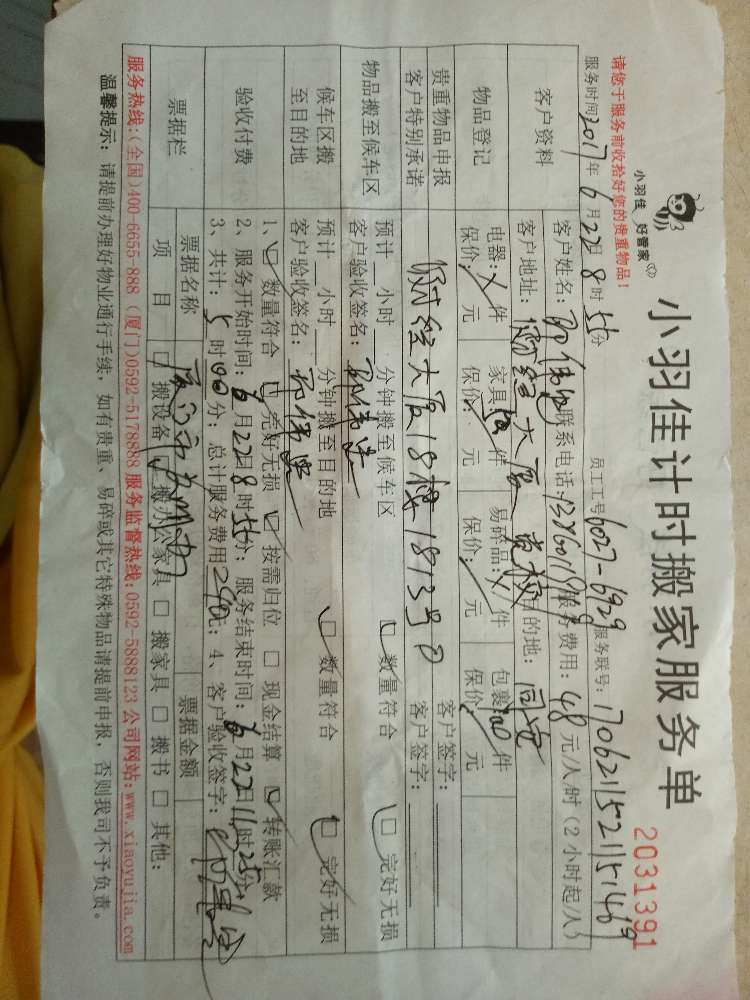 小羽佳 好管家
小羽佳计时搬家服务单
2031391
请您于服务前收拾好您的贵重物品！
员工工号: 6027-6929 服务联号: 17062115211151469
服务时间2017年6月22日8时55分
客户资料
客户姓名: 联系电话: 服务费用: 48元/人/时(2小时起/人)
客户地址: 目的地: 同安
物品登记
电器: 件 家具: 件 易碎品: 件 包裹: 件
保价: 元 保价: 元 保价: 元 保价: 元
贵重物品申报 客户签字:
客户特别承诺 财经大厦18楼1813号 客户签字:
物品搬至候车区
预计 小时 分钟搬至候车区 □数量符合 □完好无损
客户验收签名:
候车区搬至目的地
预计 小时 分钟搬至目的地 □数量符合 □完好无损
客户验收签名:
验收付费
1、□数量符合 □完好无损 □按需归位 □现金结算 □转账汇款
2、服务开始时间: 6月22日8时55分; 服务结束时间: 6月22日11时25分
3、共计: 5时00分; 总计服务费用240元; 4、客户验收签字:
票据栏
票据名称 票据金额
项目 □搬设备 □搬办公家具 □搬家具 □搬书 □其他:
服务热线:(全国)400-6655-888 (厦门)0592-5178888 服务监督热线:0592-5888123 公司网站:www.xiaoyujia.com
温馨提示: 请提前办理好物业通行手续, 如有贵重、易碎或其它特殊物品请提前申报, 否则我司不予负责。